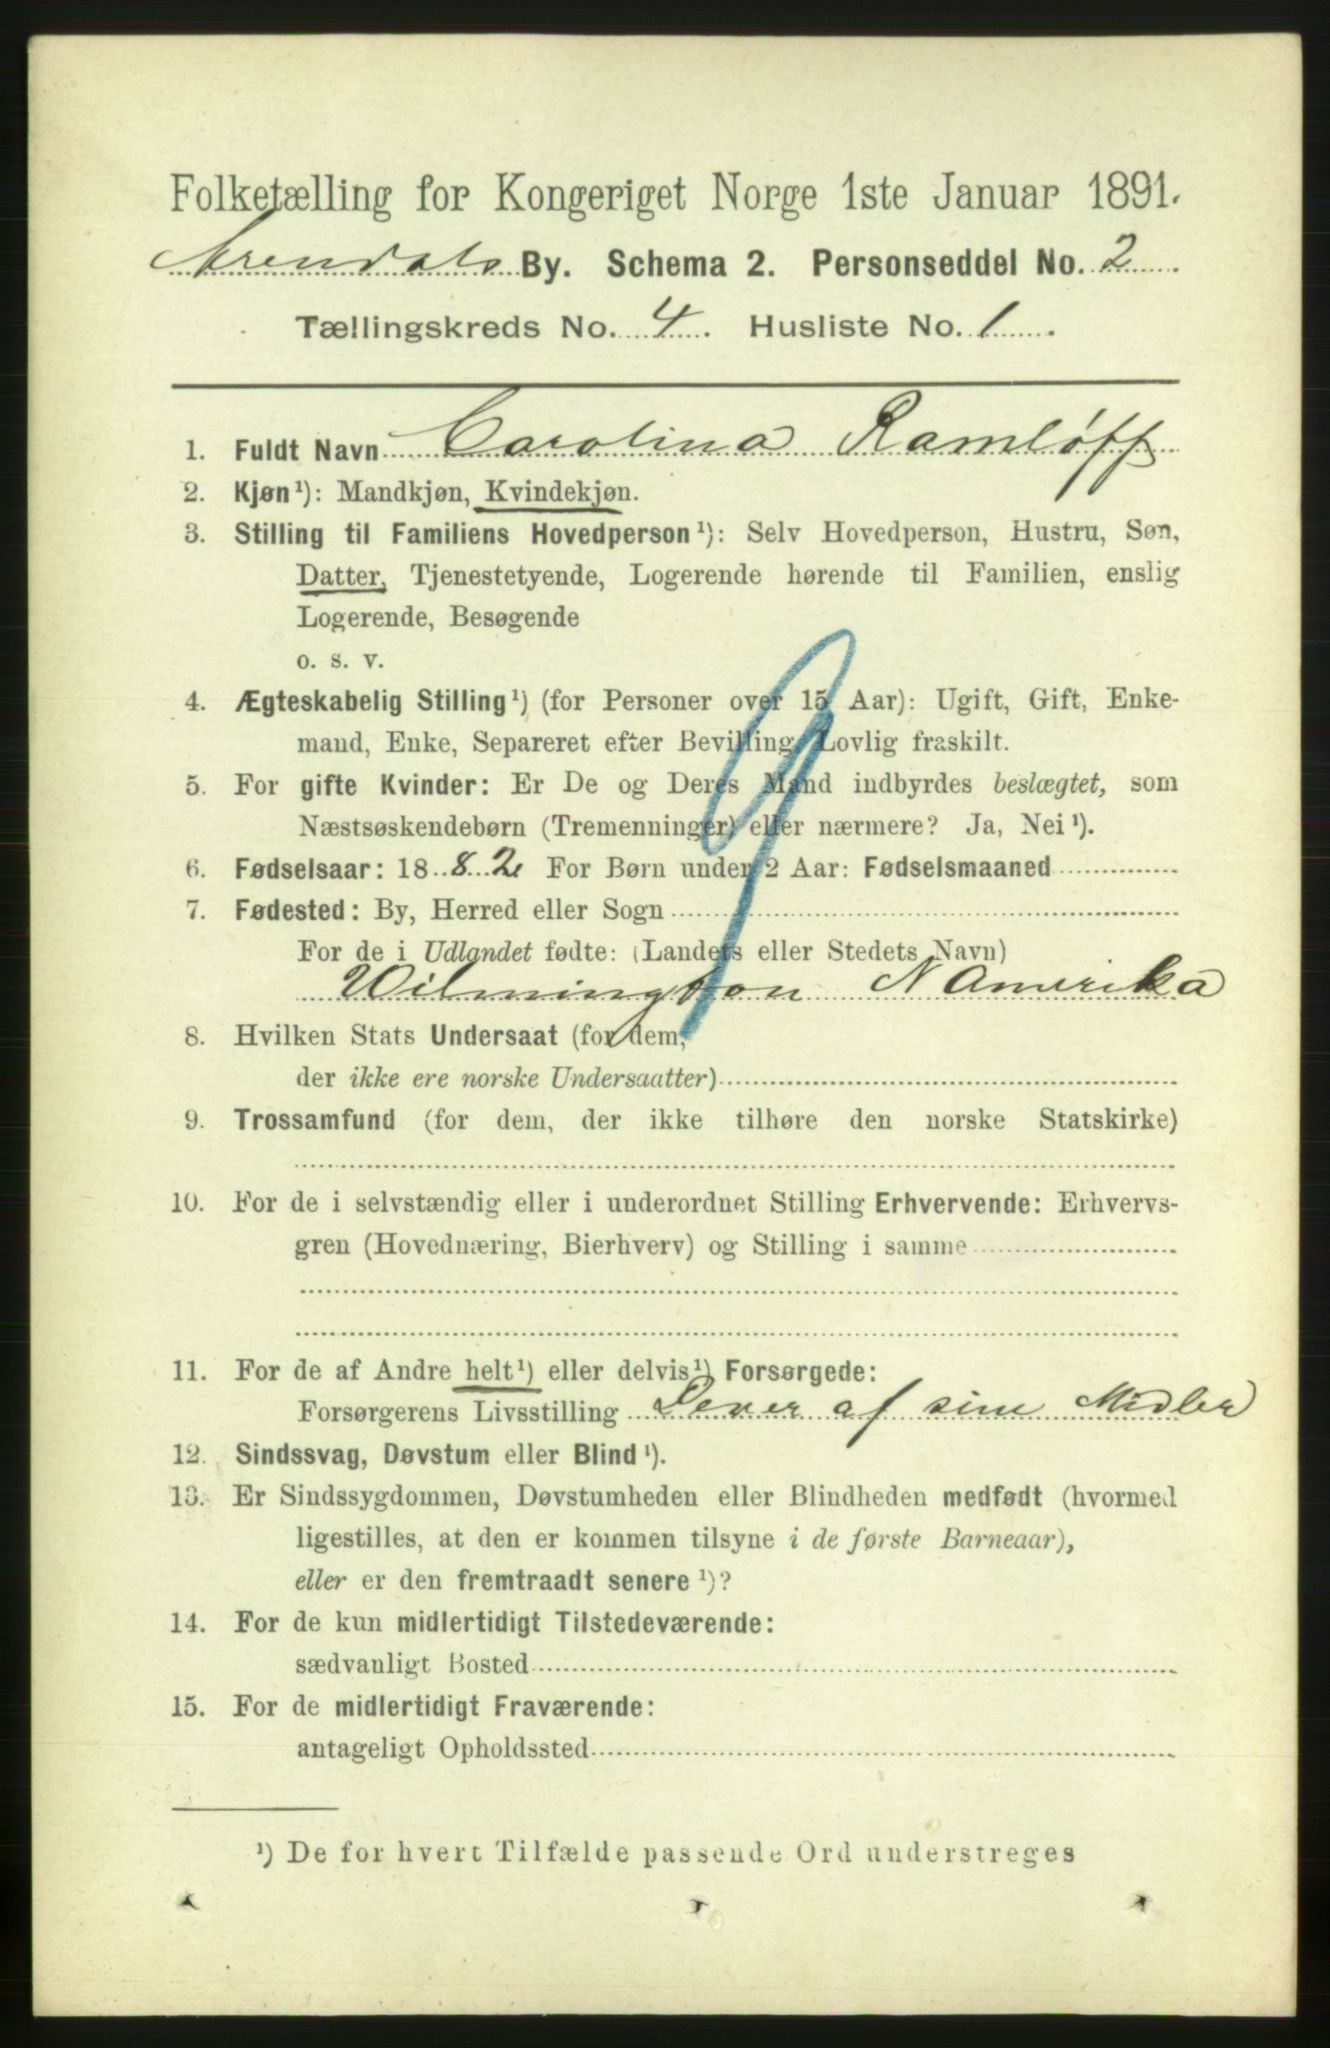 Folketælling for Kongeriget Norge 1ste Januar 1891.
Arendals By. Schema 2. Personseddel No. 2
Tællingskreds No. 4. Husliste No. 1.
1. Fuldt Navn Carolina Ramløff
2. Kjøn¹): Mandkjøn, Kvindekjøn.
3. Stilling til Familiens Hovedperson¹): Selv Hovedperson, Hustru, Søn,
Datter, Tjenestetyende, Logerende hørende til Familien, enslig
Logerende, Besøgende
o. s. v.
4. Ægteskabelig Stilling¹) (for Personer over 15 Aar): Ugift, Gift, Enke-
mand, Enke, Separeret efter Bevilling, Lovlig fraskilt.
5. For gifte Kvinder: Er De og Deres Mand indbyrdes beslægtet, som
Næstsøskendebørn (Tremenninger) eller nærmere? Ja, Nei¹).
6. Fødselsaar: 1882 For Børn under 2 Aar: Fødselsmaaned
7. Fødested: By, Herred eller Sogn
For de i Udlandet fødte: (Landets eller Stedets Navn)
Wilmington N Amerika
9
8. Hvilken Stats Undersaat (for dem,
der ikke ere norske Undersaatter)
9. Trossamfund (for dem, der ikke tilhøre den norske Statskirke)
10. For de i selvstændig eller i underordnet Stilling Erhvervende: Erhvervs-
gren (Hovednæring, Bierhverv) og Stilling i samme
11. For de af Andre helt¹) eller delvis¹) Forsørgede:
Forsørgerens Livsstilling Lever af sine Midler
12. Sindssvag, Døvstum eller Blind¹).
13. Er Sindssygdommen, Døvstumheden eller Blindheden medfødt (hvormed
ligestilles, at den er kommen tilsyne i de første Barneaar),
eller er den fremtraadt senere¹)?
14. For de kun midlertidigt Tilstedeværende:
sædvanligt Bosted
15. For de midlertidigt Fraværende:
antageligt Opholdssted
¹) De for hvert Tilfælde passende Ord understreges